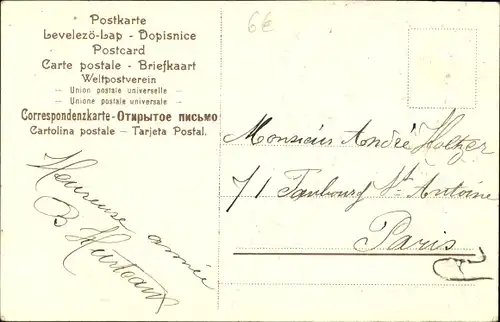 6€
Postkarte
Levelezö-Lap - Dopisnice
Postcard
Carte postale - Briefkaart
Weltpostverein
- Union postale universelle -
- Unione postale universale -
Correspondenzkarte - Открытое письмо
Cartolina postale - Tarjeta Postal.
Heureuse année
B Hurteaux
Monsieur André Holtzer
71 Faubourg St Antoine
Paris